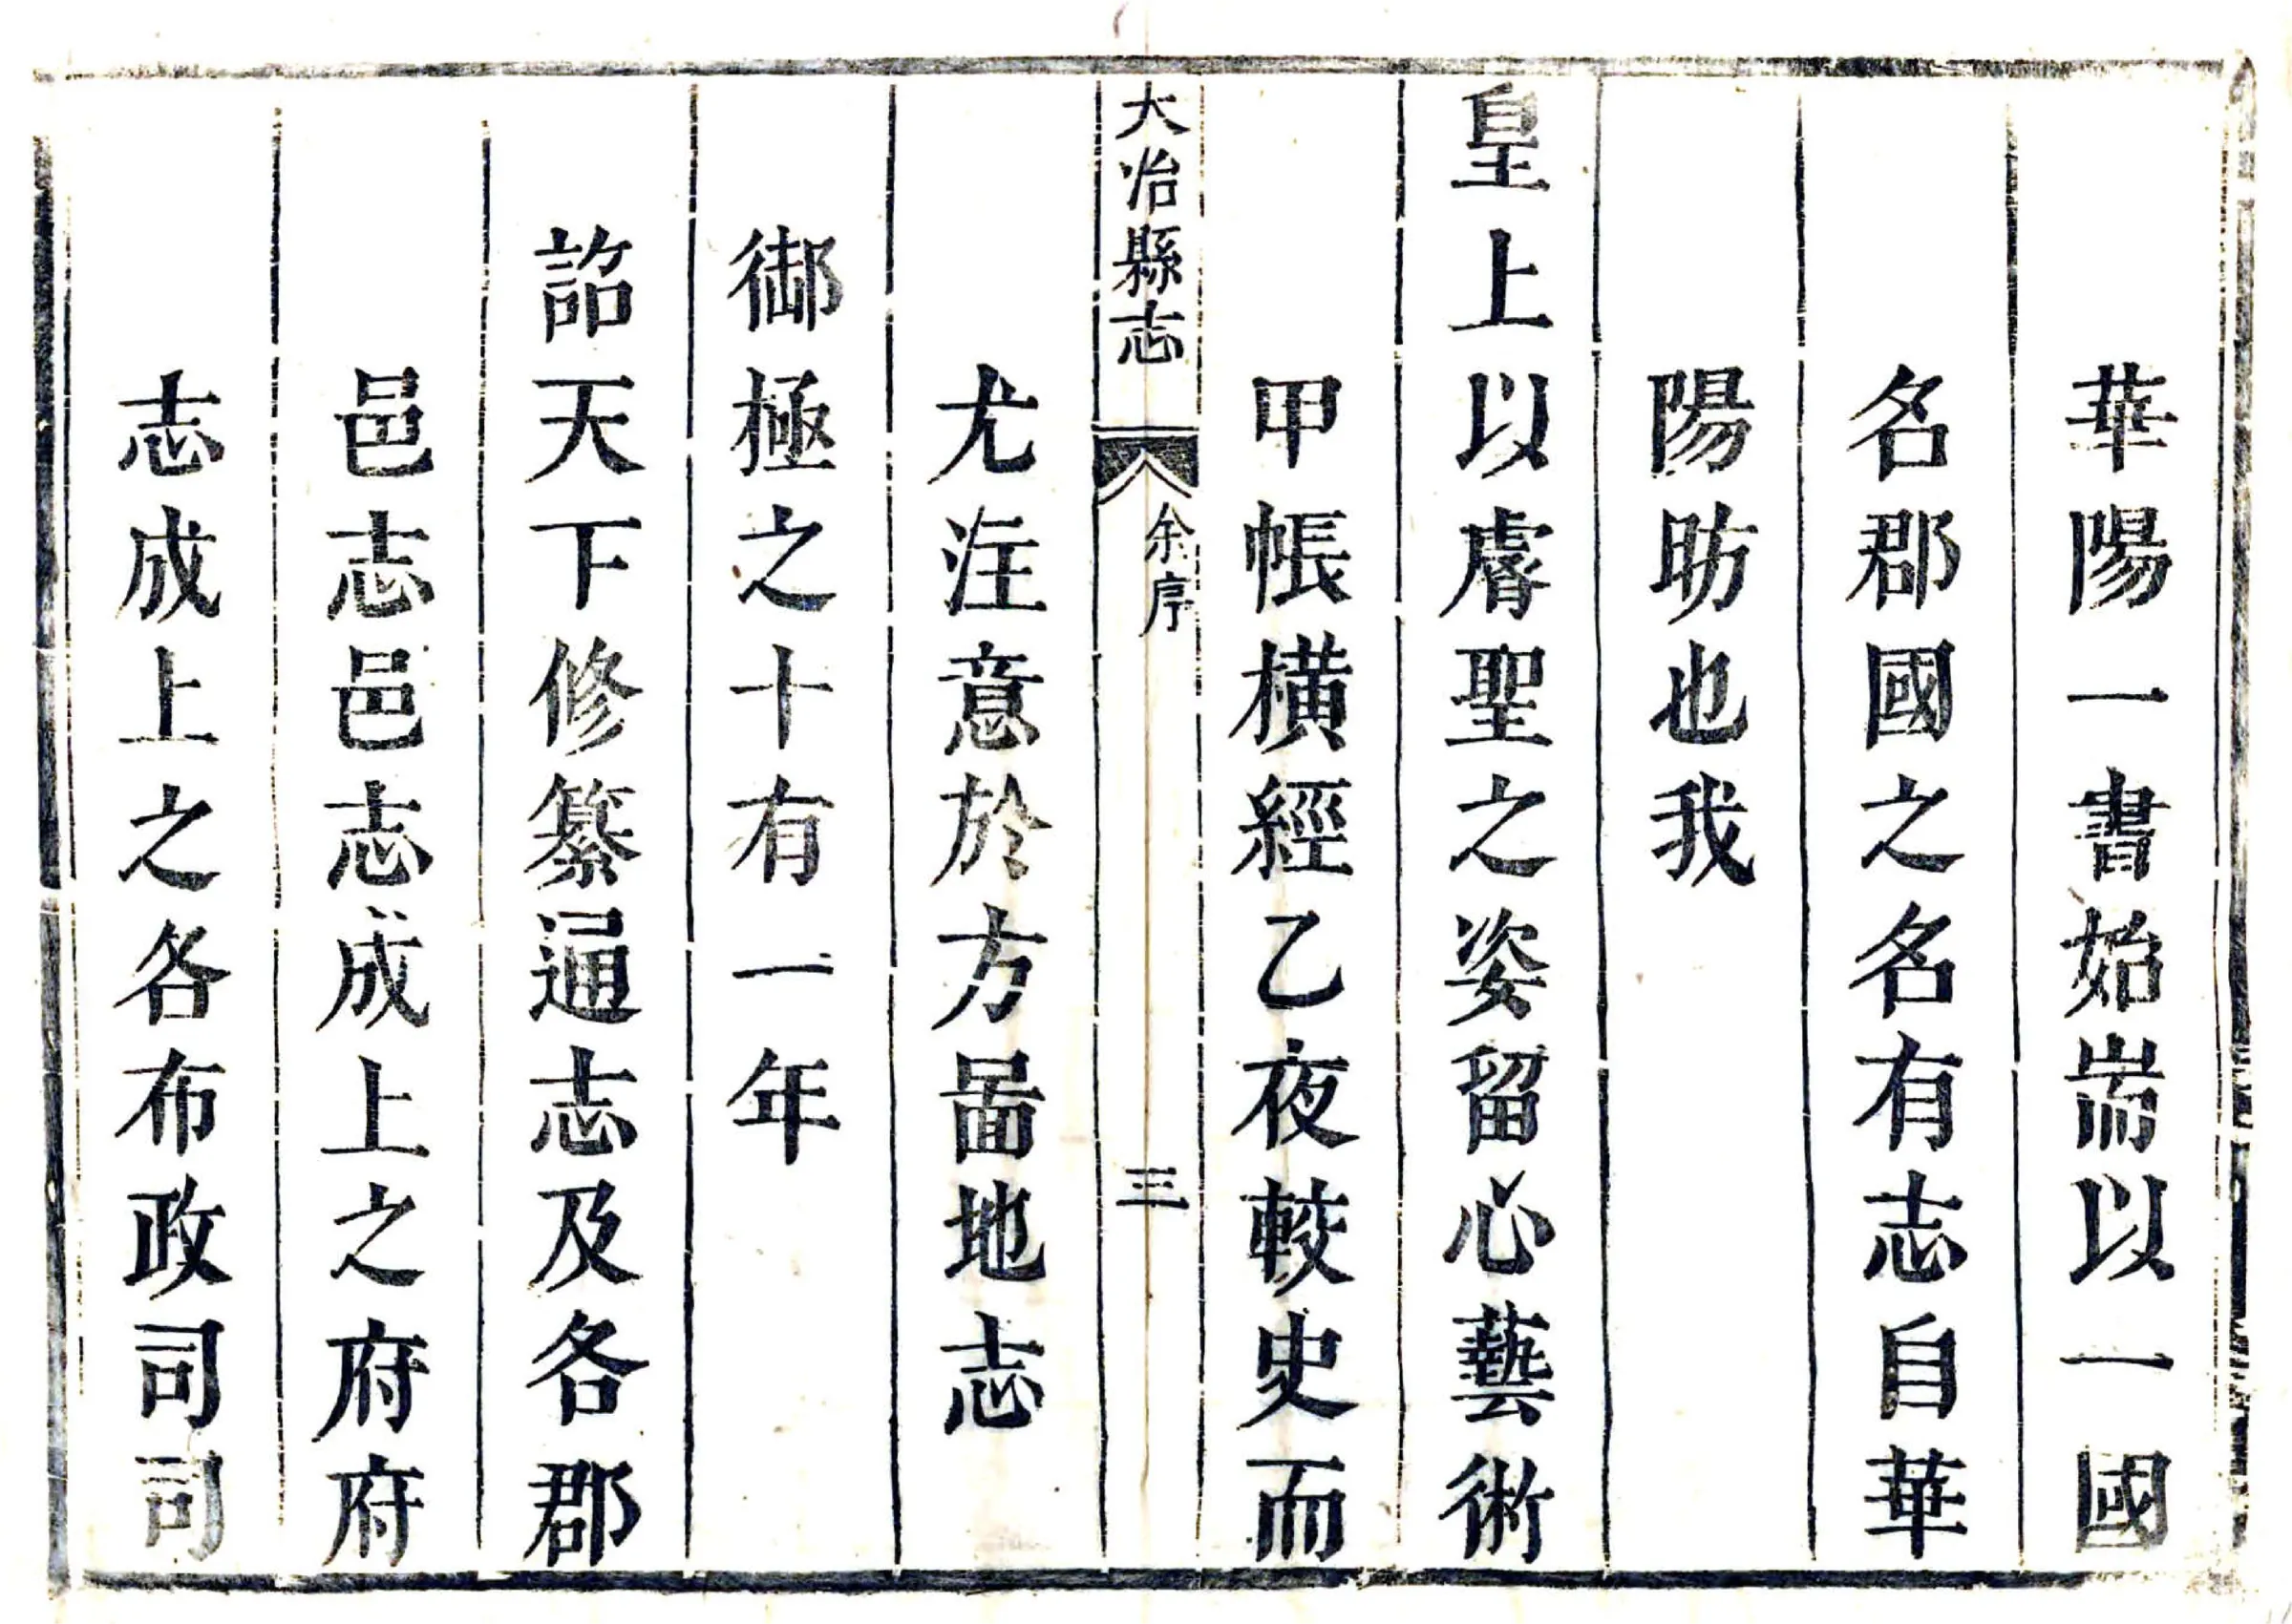 華陽一書始耑以一國
名郡國之名有志自華
陽昉也我
皇上以膚聖之姿留心藝術
甲帳橫經乙夜較史而
大冶縣志 余序 三
尤注意於方啚地志
御極之十有一年
詔天下修纂通志及各郡
邑志邑志成上之府府
志成上之各布政司司